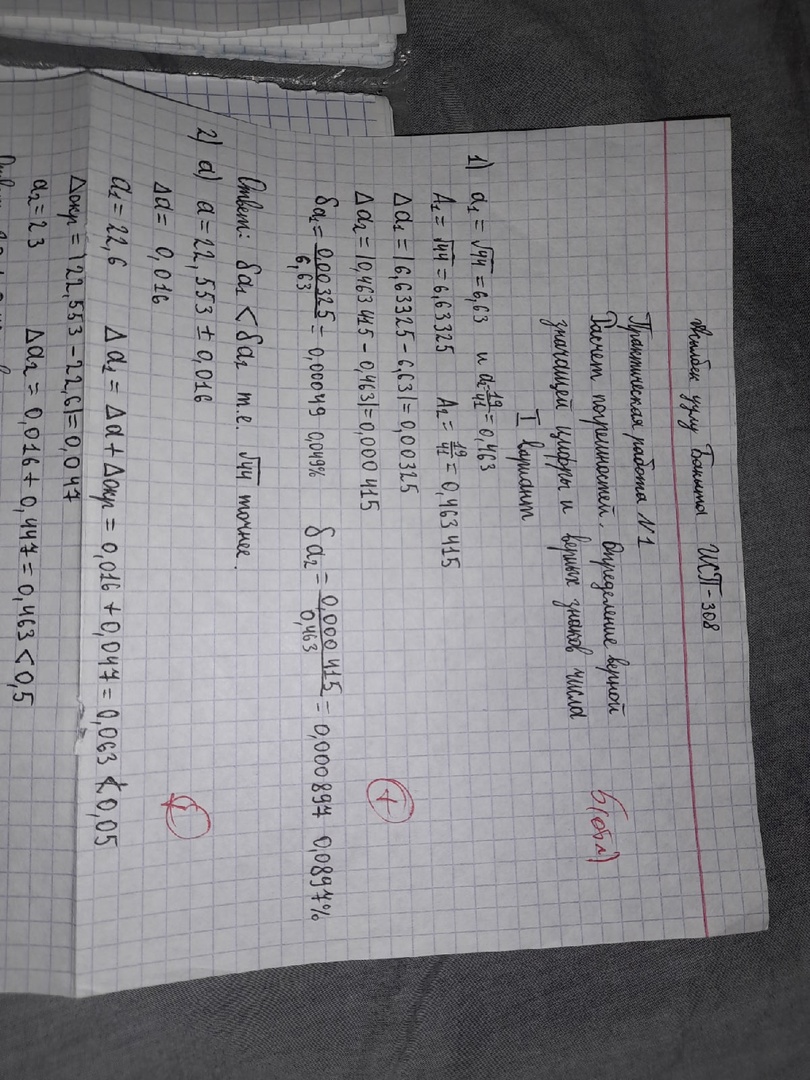 уулу Бакыта ИСП-308
Практическая работа N1
Расчет погрешностей. Определение верной
значащей цифры и верных знаков числа
I вариант
5(отл)
1) a₁ = √44 = 6,63 и a₂ = 19/41 = 0,463
A₁ = √44 = 6,63325 A₂ = 19/41 = 0,463415
Δa₁ = |6,63325 - 6,63| = 0,00325
Δa₂ = |0,463415 - 0,463| = 0,000415
δa₁ = 0,00325/6,63 = 0,00049 0,049% δa₂ = 0,000415/0,463 = 0,000897 0,0897%
Ответ: δa₁ < δa₂ т.е. √44 точнее.
2) а) a = 22,553 ± 0,016
Δa = 0,016
a₁ = 22,6 Δa₁ = Δa + Δокр = 0,016 + 0,047 = 0,063 ≮ 0,05
Δокр = |22,553 - 22,6| = 0,047
a₂ = 23 Δa₂ = 0,016 + 0,447 = 0,463 < 0,5